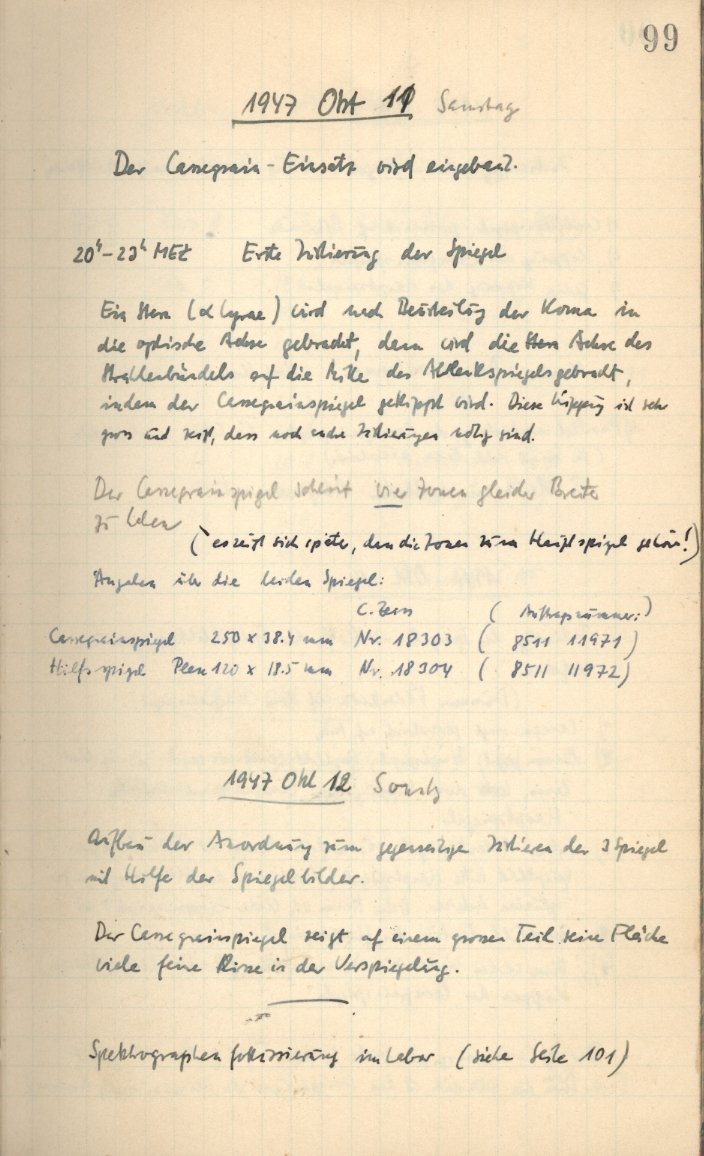 99
1947 Okt 11 Samstag
Der Cassegrain-Einsatz wird eingebaut.
20h-23h MEZ Erste Justierung der Spiegel
Ein Stern (α Lyrae) wird nach Beurteilung der Koma in
die optische Achse gebracht, dann wird die Achse des
Strahlenbündels auf die Mitte des Ablenkspiegels gebracht,
indem der Cassegrainspiegel gekippt wird. Diese Kippung ist sehr
gross und zeigt, dass noch mehr Justierungen nötig sind.
Der Cassegrainspiegel scheint vier Zonen gleicher Breite
zu haben
(es zeigt sich später, dass die Zonen zum Hauptspiegel gehören!)
Angaben über die beiden Spiegel:
C. Zeiss (Auftragsnummer:)
Cassegrainspiegel 250 x 38.4 mm Nr. 18303 (8511 11971)
Hilfsspiegel Plan 120 x 18.5 mm Nr. 18304 (8511 11972)
1947 Okt 12 Sonntg
Aufbau der Anordnung zum gegenseitigen Justieren der 3 Spiegel
mit Hilfe der Spiegelbilder.
Der Cassegrainspiegel zeigt auf einem grossen Teil seine Fläche
viele feine Risse in der Verspiegelung.
Spektrographen fokussierung im Labor (siehe Seite 101)